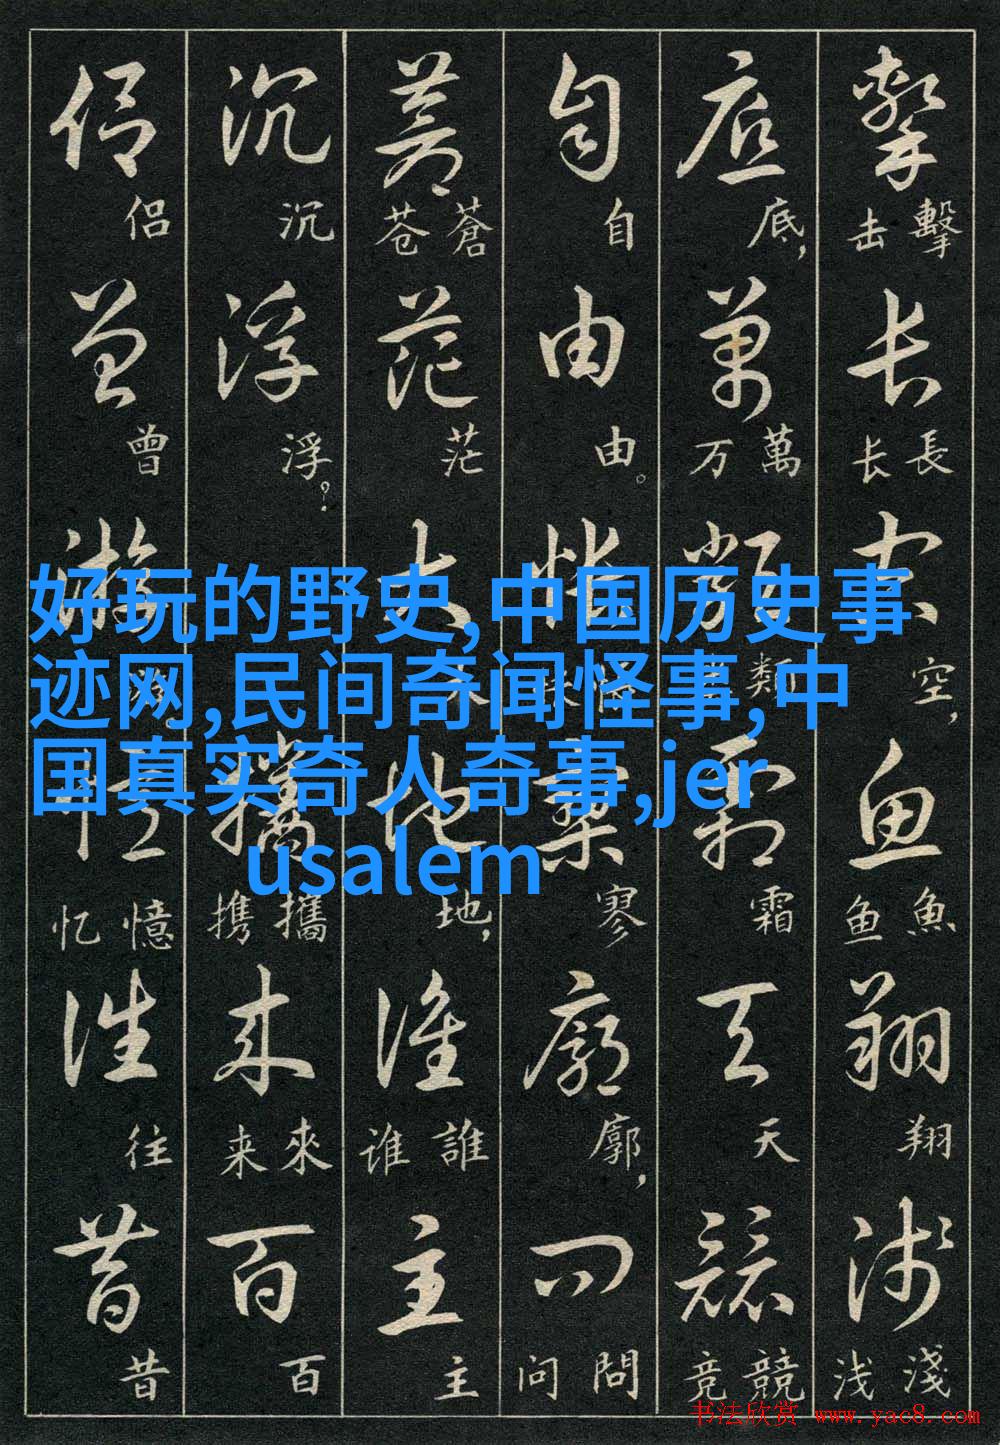 好玩的野史,中国历史事
迹网,民间奇闻怪事,中
国真实奇人奇事,jer
usalem
擊擊击长長长空空,鱼魚鱼翔翔浅淺浅
底底,萬萬万類類霜霜天天競競竞
自自由由。悵寥寥廓廓,問問问
蒼蒼苍茫茫大大地地,誰誰谁主主
沉沉浮浮?攜攜携来來来百百
侣侣曾曾游憶憶忆往往昔昔
书法欣赏 www.yac8.com